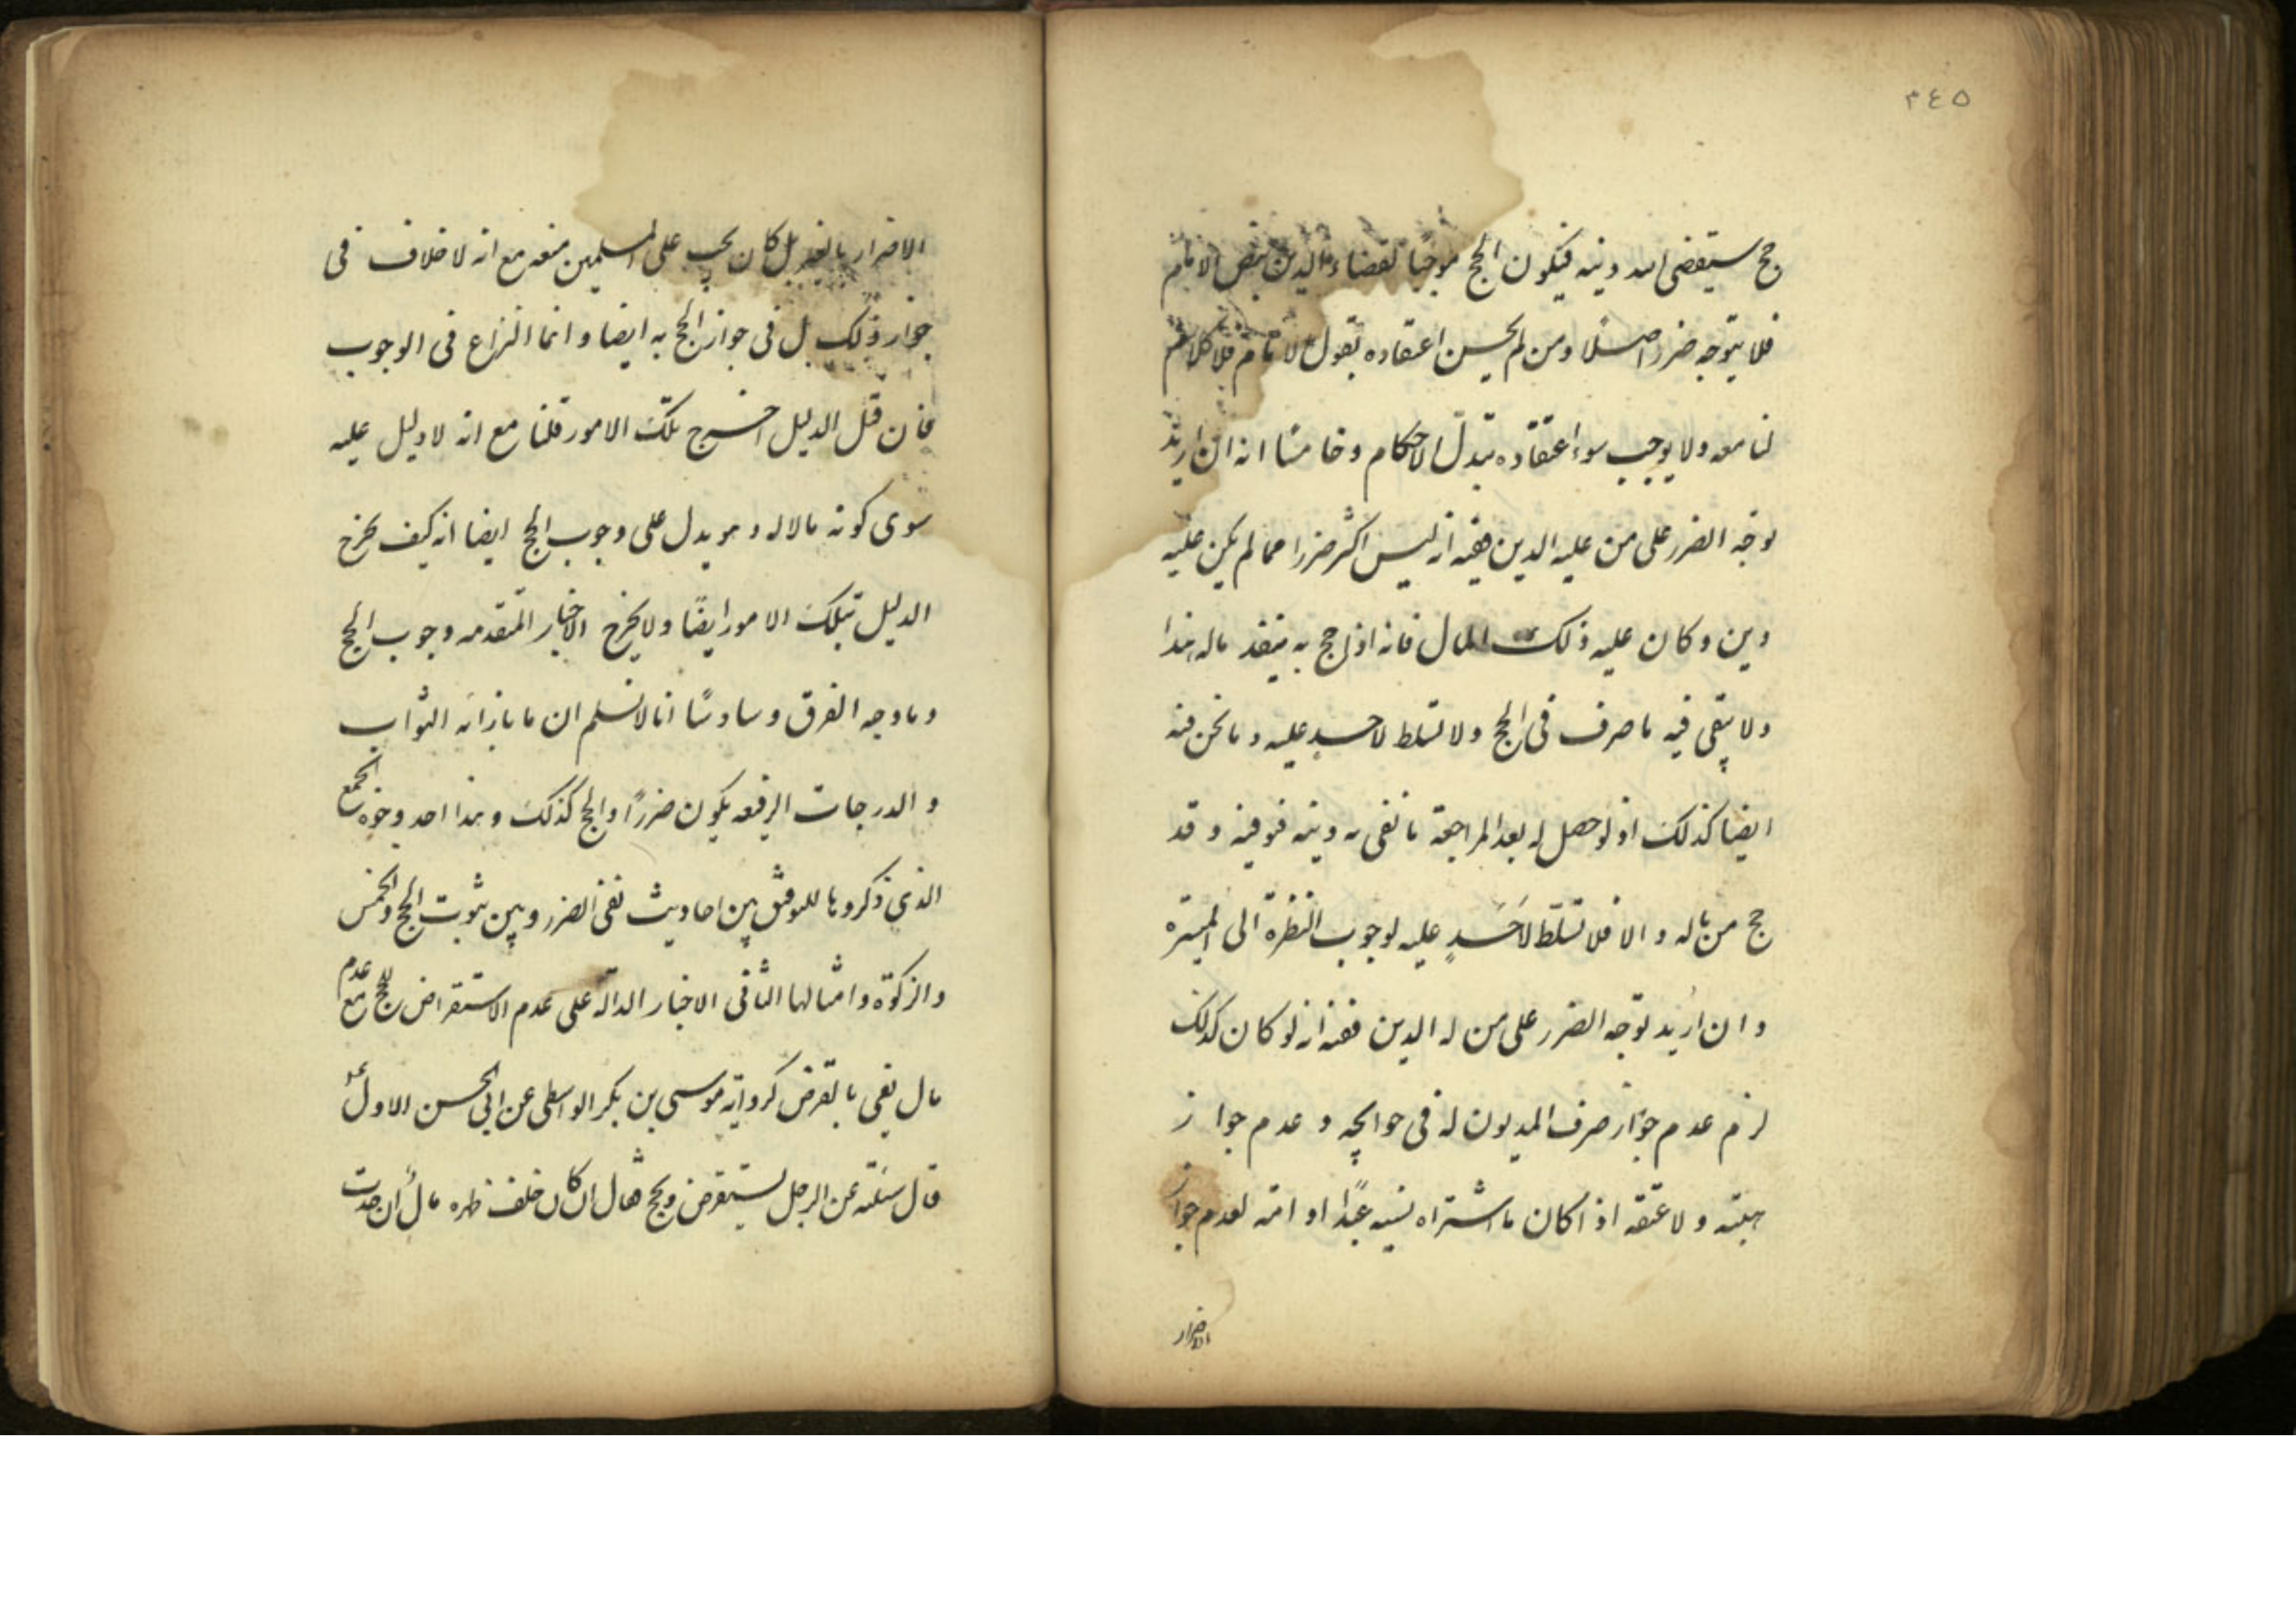 ٣٤٥
حج سيقضى الله دينه فيكون الحج موجبا لقضاء الدين بنص الامام
فلا يتوجه ضرر اصلا ومن لم يحسن اعتقاده بقول الامام فلا كلام
لنا معه ولا يوجب سوء اعتقاده تبدل الاحكام وخامسا انه ان اريد
توجه الضرر على من عليه الدين ففيه انه ليس اكثر ضررا مما لم يكن عليه
دين وكان عليه ذلك المال فانه اذا حج به ينفد ماله هذا
ولا يبقى فيه ما صرف فى الحج ولا تسلط لاحد عليه وما نحن فيه
ايضا كذلك اذ لو حصل له بعد المراجعة ما تفى به دينه فوفيه وقد
حج من ماله والا فلا تسلّط لاَحَدٍ عليه لوجوب النظرة الى الميسرة
وان اريد توجه الضرر على من له الدين ففيه انه لو كان كذلك
لزم عدم جواز صرف المديون له فى حوايجه وعدم جواز
هبته ولا عتقه اذا كان ما اشتراه نسيه عبدًا او امته لعدم جواز
الاضرار
الاضرار بالغير بل كان يجب على المسلمين منعه مع انه لا خلاف فى
جواز ذلك بل فى جواز الحج به ايضا وانما النزاع فى الوجوب
فان قيل الدليل اخرج تلك الامور قلنا مع انه لا دليل عليه
سوى كونه مالا له وهو يدل على وجوب الحج ايضا انه كيف يخرج
الدليل تلك الامور ايضًا ولا يخرج الاخبار المتقدمه وجوب الحج
وما وجه الفرق وسادسًا انا لا نسلم ان ما بازائه الثواب
والدرجات الرفيعه يكون ضررًا والحج كذلك وهذا احد وجوه الجمع
الذى ذكروها للتوفيق بين احاديث نفى الضرر وبين ثبوت الحج والخمس
والزكوة وامثالها الثانى الاخبار الدالة على عدم الاستقراض للحج مع عدم
مال يفى بالقرض كرواية موسى بن بكر الواسطى عن ابى الحسن الاول ع
قال سئلته عن الرجل يستقرض ويحج فقال ان كان خلف ظهره مال ان حدث